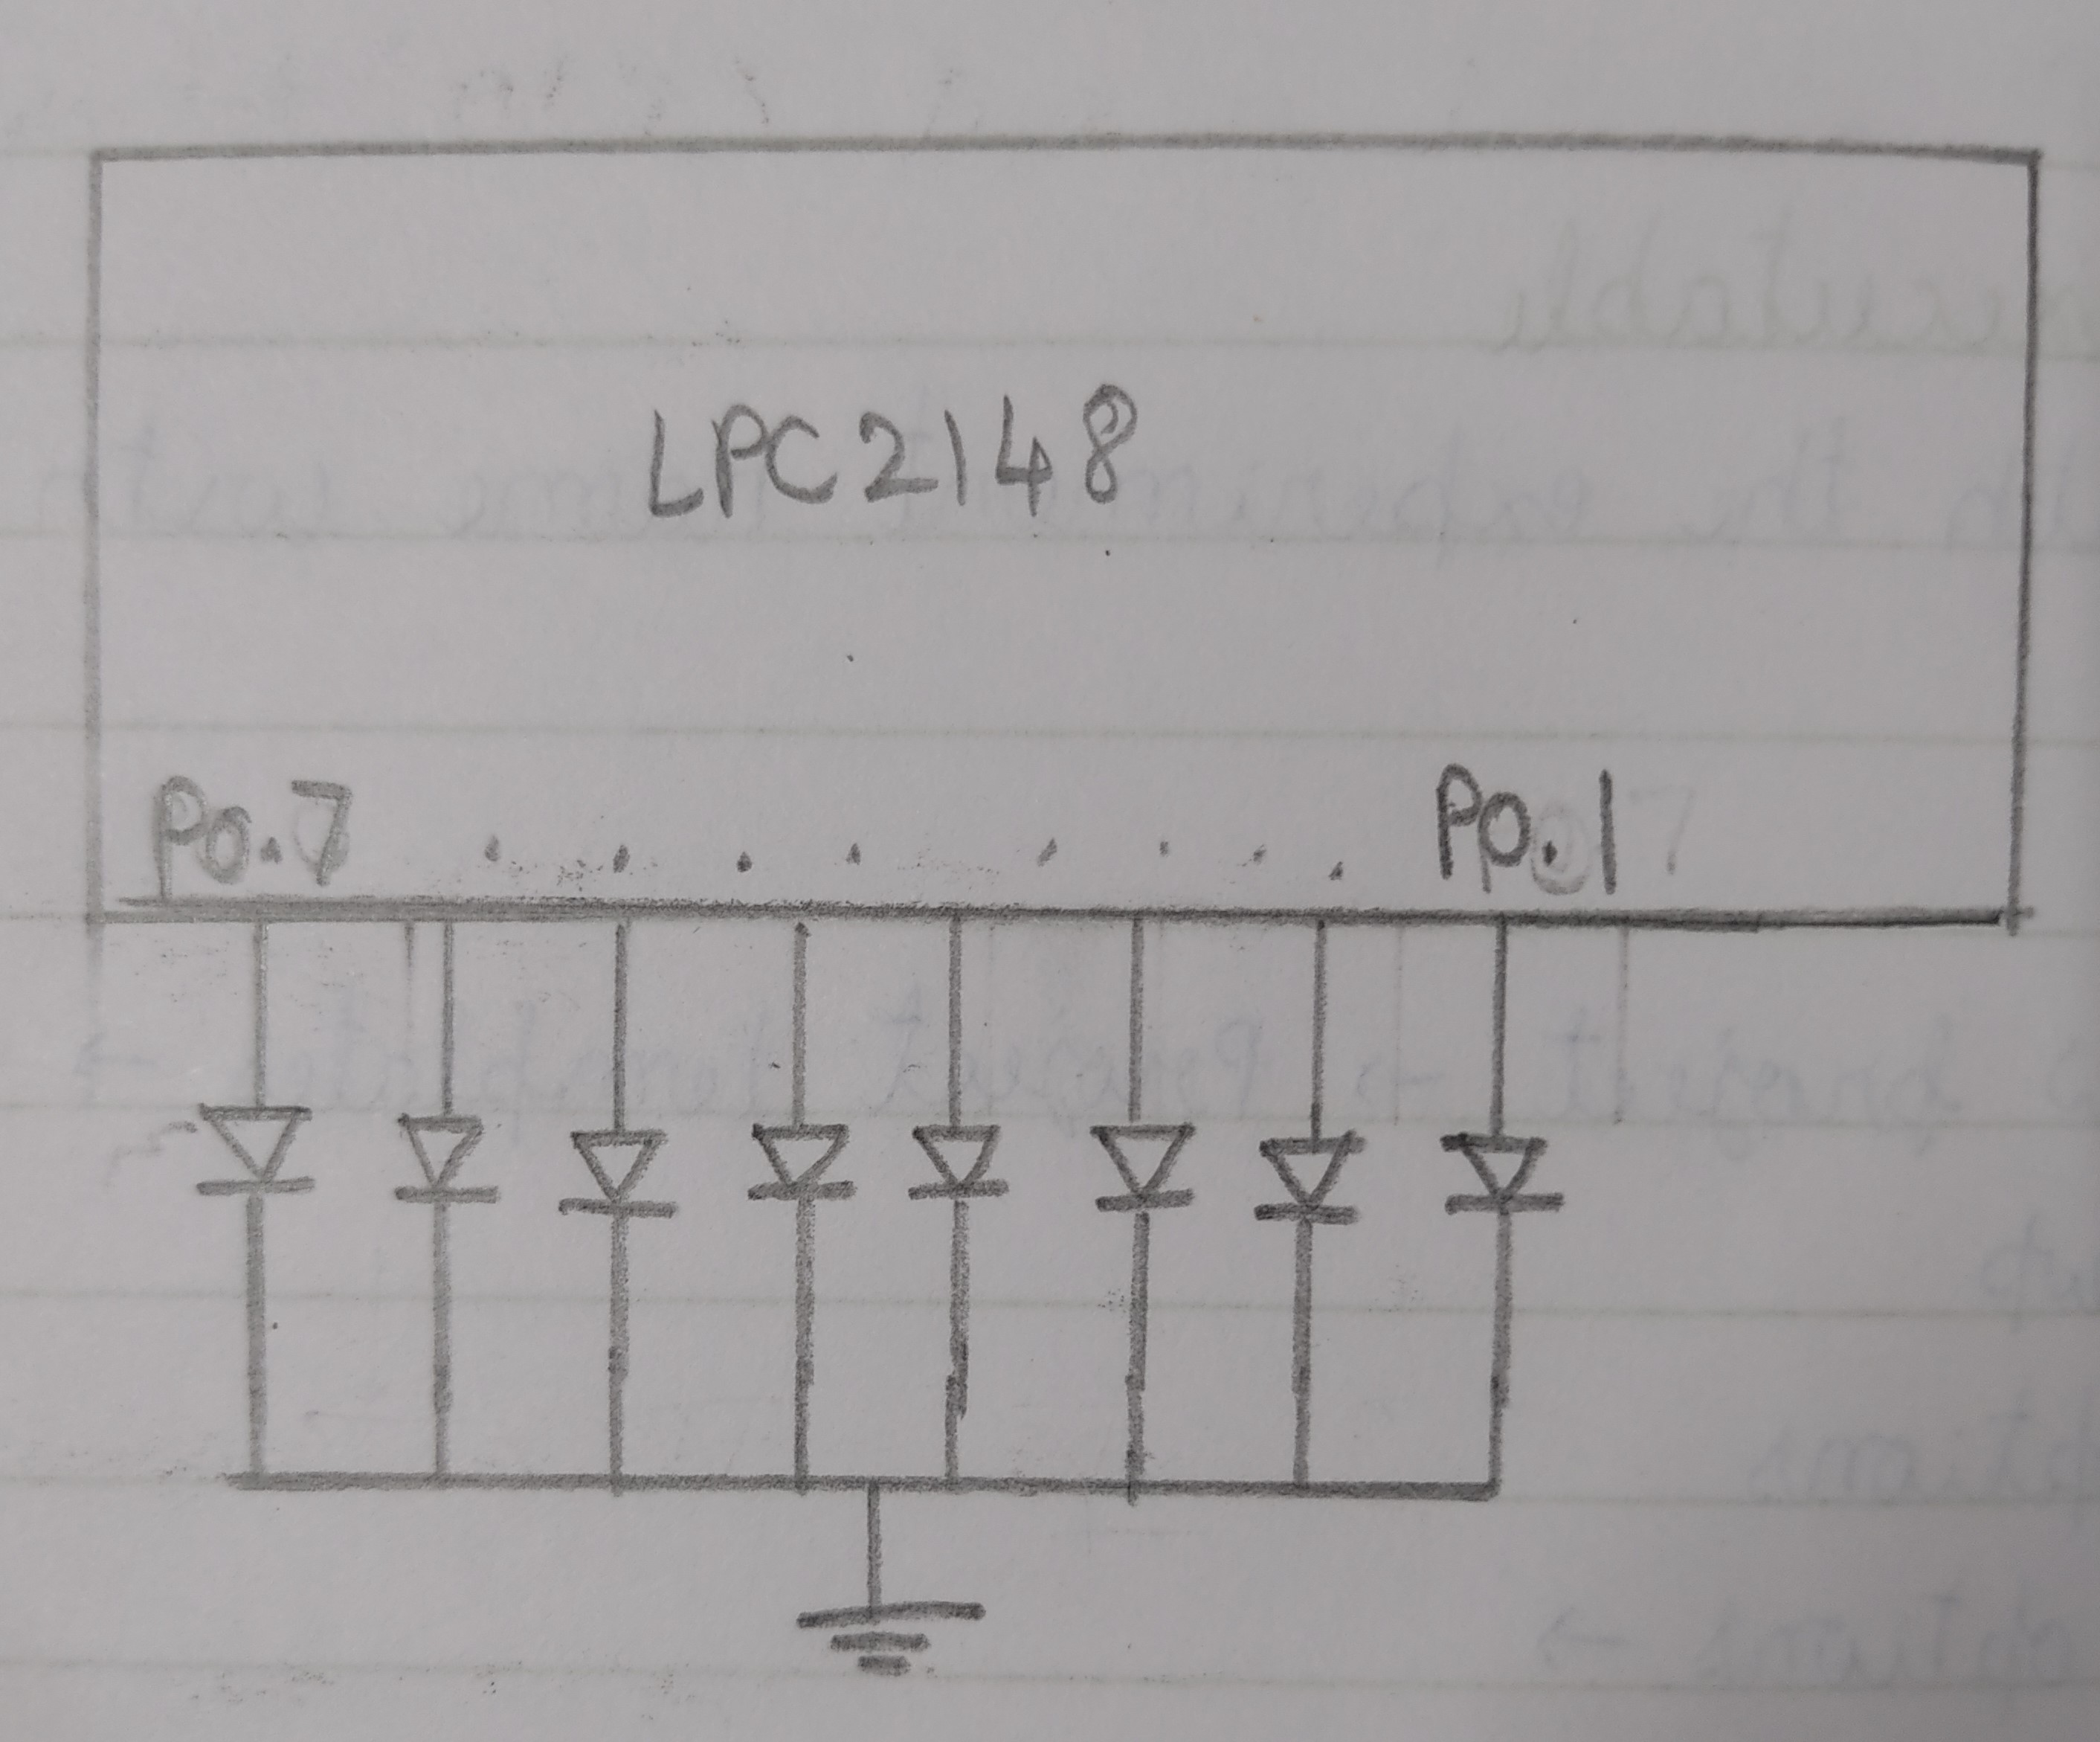 LPC2148
P0.7 . . . . . . . . P0.1